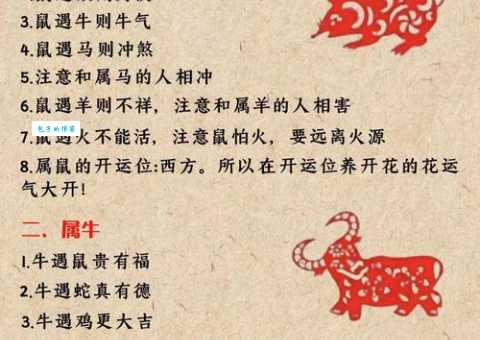 3.鼠遇牛则牛气
4.鼠遇马则冲煞
5.注意和属马的人相冲
6.鼠遇羊则不祥，注意和属羊的人相害
包子的博客
7.鼠遇火不能活，注意鼠怕火，要远离火源
8.属鼠的开运位:西方。所以在开运位养开花的花运
气大开!
二、属牛
1.牛遇鼠贵有福
2.牛遇蛇真有德
3.牛遇鸡更大吉